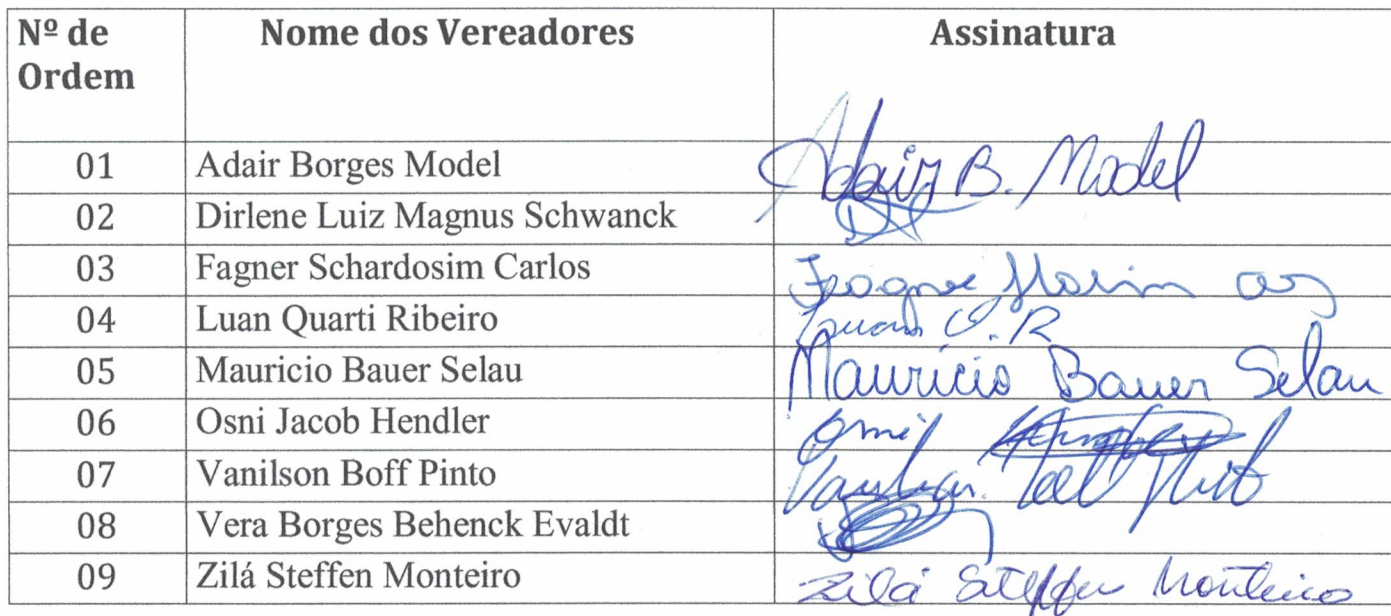 Nº de Ordem Nome dos Vereadores Assinatura
01 Adair Borges Model Adair B. Model
02 Dirlene Luiz Magnus Schwanck
03 Fagner Schardosim Carlos
04 Luan Quarti Ribeiro Luan Q. R
05 Mauricio Bauer Selau Mauricio Bauer Selau
06 Osni Jacob Hendler Osni
07 Vanilson Boff Pinto
08 Vera Borges Behenck Evaldt
09 Zilá Steffen Monteiro Zilá Steffen Monteiro